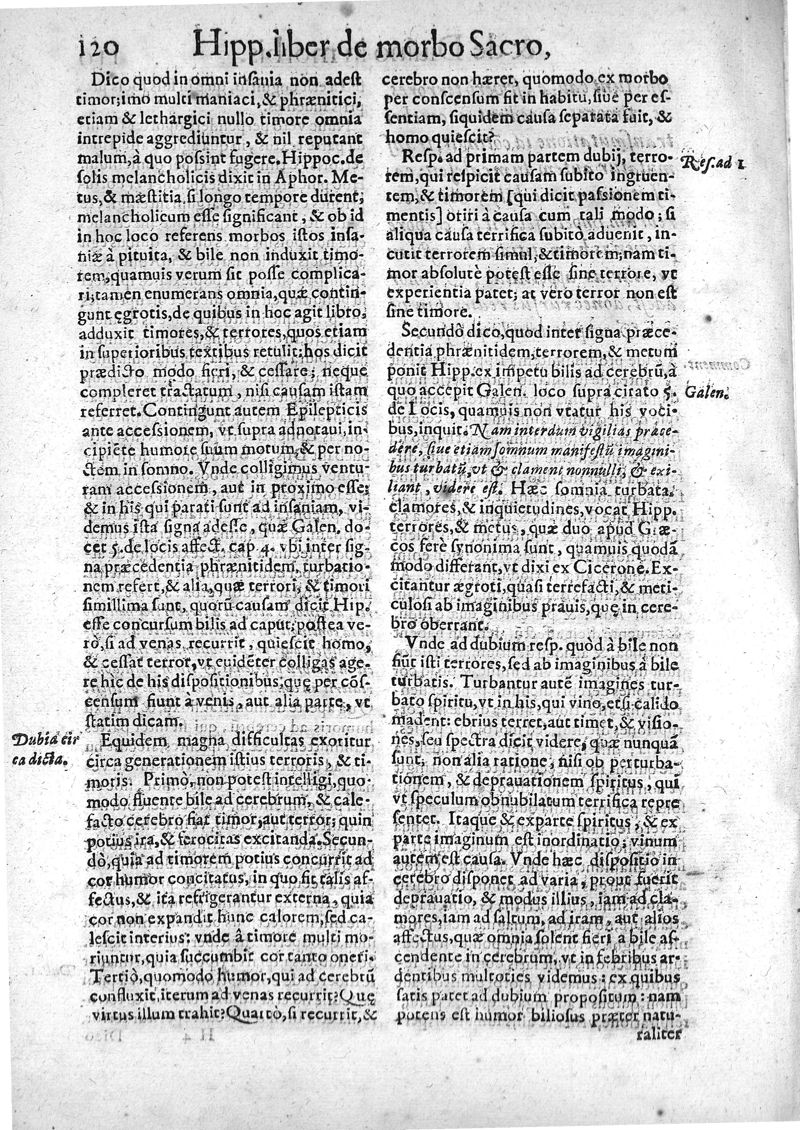 120 Hipp. liber de morbo Sacro,
Dico quod in omni insania non adest
timor; imo multi maniaci, & phrænitici,
etiam & lethargici nullo timore omnia
intrepide aggrediuntur, & nil reputant
malum, à quo possint fugere. Hippoc. de
solis melancholicis dixit in Aphor. Me-
tus, & mæstitia, si longo tempore durent,
melancholicum esse significant, & ob id
in hoc loco referens morbos istos insa-
niæ à pituita, & bile non induxit timo-
rem, quamuis verum sit posse complica-
ri; tamen enumerans omnia, quæ contin-
gunt ęgrotis, de quibus in hoc agit libro,
adduxit timores, & terrores, quos etiam
in superioribus textibus retulit; hos dicit
prædicto modo fieri, & cessare; neque
compleret tractatum, nisi causam istam
referret. Contingunt autem Epilepticis
ante accessionem, vt supra adnotaui, in-
cipiēte humore suum motum, & per no-
ctem in somno. Vnde colligimus ventu-
ram accessionem, aut in proximo esse;
& in his qui parati sunt ad insaniam, vi-
demus ista signa adesse, quæ Galen. do-
cet 5. de locis affect. cap. 4. vbi inter sig-
na præcedentia phrænitidem, turbatio-
nem refert, & alia, quæ terrori, & timori
simillima sunt, quorū causam dicit Hip.
esse concursum bilis ad caput; postea ve-
rò, si ad venas recurrit, quiescit homo,
& cessat terror, vt euidēter colligas age-
re hic de his dispositionibus, quę per cōs-
censum fiunt à venis, aut alia parte, vt
statim dicam.
Dubia cir
ca dicta.
Equidem magna difficultas exoritur
circa generationem istius terroris, & ti-
moris. Primò, non potest intelligi, quo-
modo fluente bile ad cerebrum, & cale-
facto cerebro fiat timor, aut terror; quin
potius ira, & ferocitas excitanda. Secun-
dò, quia ad timorem potius concurrit ad
cor humor concitatus, in quo fit talis af-
fectus, & ita refrigerantur externa, quia
cor non expandit hunc calorem, sed ca-
lescit interius: vnde à timore multi mo-
riuntur, quia succumbit cor tanto oneri.
Tertiò, quomodo humor, qui ad cerebrū
confluxit, iterum ad venas recurrit? Quę
virtus illum trahit? Quartò, si recurrit, &
cerebro non hæret, quomodo ex morbo
per conscensum fit in habitu, siue per es-
sentiam, siquidem causa separata fuit, &
homo quiescit?
Resp. ad primam partem dubij, terro-
rem, qui respicit causam subito ingruen-
tem, & timorem [qui dicit passionem ti-
mentis] oriri à causa cum tali modo; si
aliqua causa terrifica subitò aduenit, in-
cutit terrorem simul, & timorem; nam ti-
mor absolutè potest esse sine terrore, vt
experientia patet; at verò terror non est
sine timore.
Res. ad 1
Secundò dico, quod inter signa præce-
dentia phrænitidem, terrorem, & metum
ponit Hipp. ex impetu bilis ad cerebrū, à
quo accepit Galen. loco supra citato 5.
de Locis, quamuis non vtatur his voci-
bus, inquit. Nam interdum vigilias præce-
dere, siue etiam somnum manifestū imagini-
bus turbatū, vt & clament nonnulli, & exi-
liant, videre est. Hæc somnia turbata,
clamores, & inquietudines, vocat Hipp.
terrores, & metus, quæ duo apud Græ-
cos ferè synonima sunt, quamuis quodā
modo differant, vt dixi ex Cicerone. Ex-
citantur ægroti, quasi terrefacti, & meti-
culosi ab imaginibus prauis, quę in cere-
bro oberrant.
Galen.
Vnde ad dubium resp. quòd à bile non
fiūt isti terrores, sed ab imaginibus à bile
turbatis. Turbantur autē imagines tur-
bato spiritu, vt in his, qui vino, etsi calido
madent: ebrius terret, aut timet, & visio-
nes, seu spectra dicit videre, quæ nunquā
sunt, non alia ratione, nisi ob perturba-
tionem, & deprauationem spiritus, qui
vt speculum obnubilatum terrifica repre
sentet. Itaque & exparte spiritus, & ex
parte imaginum est inordinatio; vinum
autem est causa. Vnde hæc dispositio in
cerebro disponet ad varia, prout fuerit
deprauatio, & modus illius, iam ad cla-
mores, iam ad saltum, ad iram, aut alios
affectus, quæ omnia solent fieri à bile as-
cendente in cerebrum, vt in febribus ar-
dentibus multoties videmus: ex quibus
satis patet ad dubium propositum: nam
potens est humor biliosus præter natu-
raliter